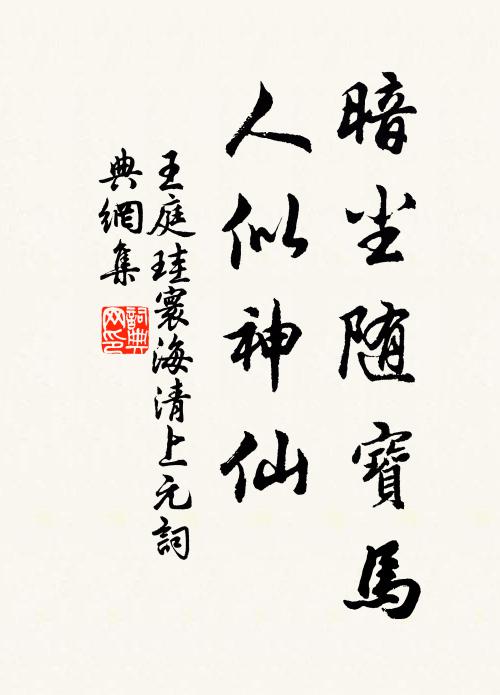 暗尘随寶馬
人似神仙
王庭珪寰海清上元詞
典網集
詞典网印